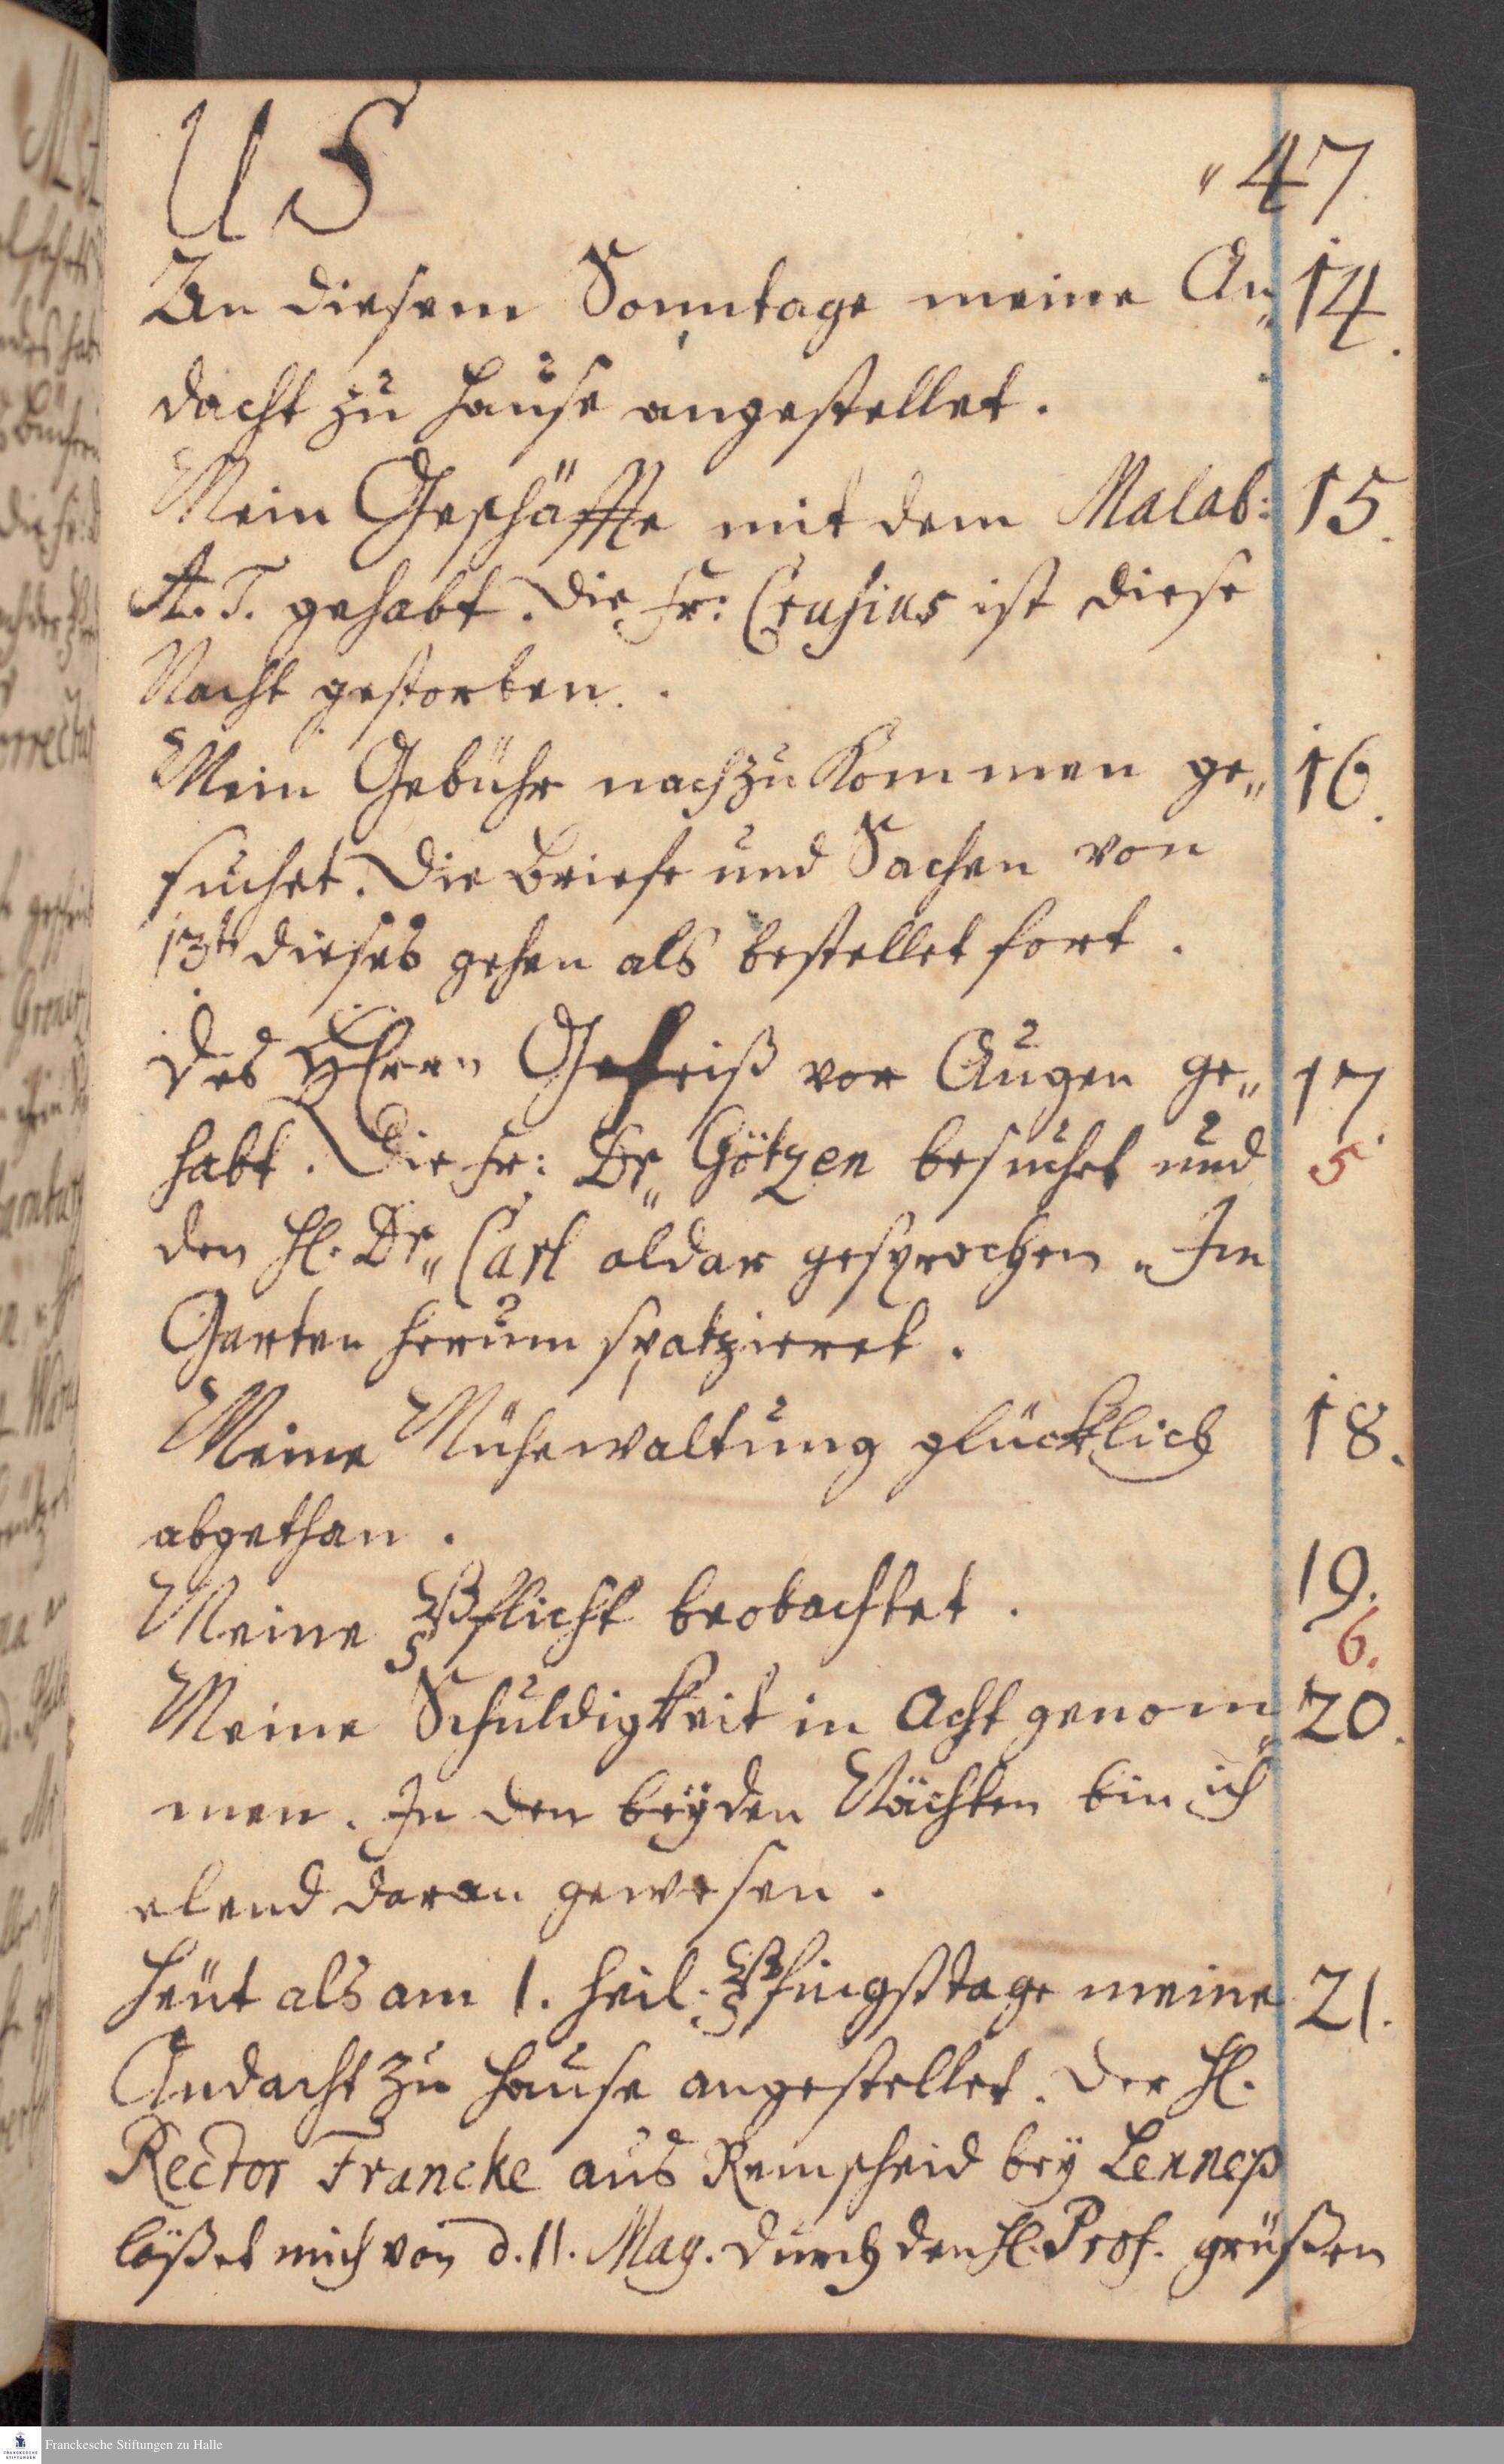 US
" 47
An diesem Sonntage meine An= 14.
dacht zu Hause angestellet.
Mein Geschäffte mit dem Malab: 15.
A. T. gehabt. Die Fr: Crusius ist diese
Nacht gestorben.
Mein Gebühr nachzukommen ge= 16.
suchet. Die Briefe und Sachen von
13ten dieses gehen als bestellet fort.
Des HErrn Geheiß vor Augen ge= 17.
habt. Die Fr: Dr. Götzen besuchet und 5
den H. Dr. Carl aldar gesprochen. Im
Garten herum spatzieret.
Meine Mühewaltung glücklich 18.
abgethan.
Meine Pflicht beobachtet. 19.
6.
Meine Schuldigkeit in Acht genom= 20.
men. In den beyden Nächten bin ich
elend daran gewesen.
Heut als am 1. heil. Pfingsttage meine 21.
Andacht zu Hause angestellet. Der H.
Rector Francke aus Remscheid bey Lennep
läßet mich von d. 11. May. durch den H. Prof. grüßen
Franckesche Stiftungen zu Halle